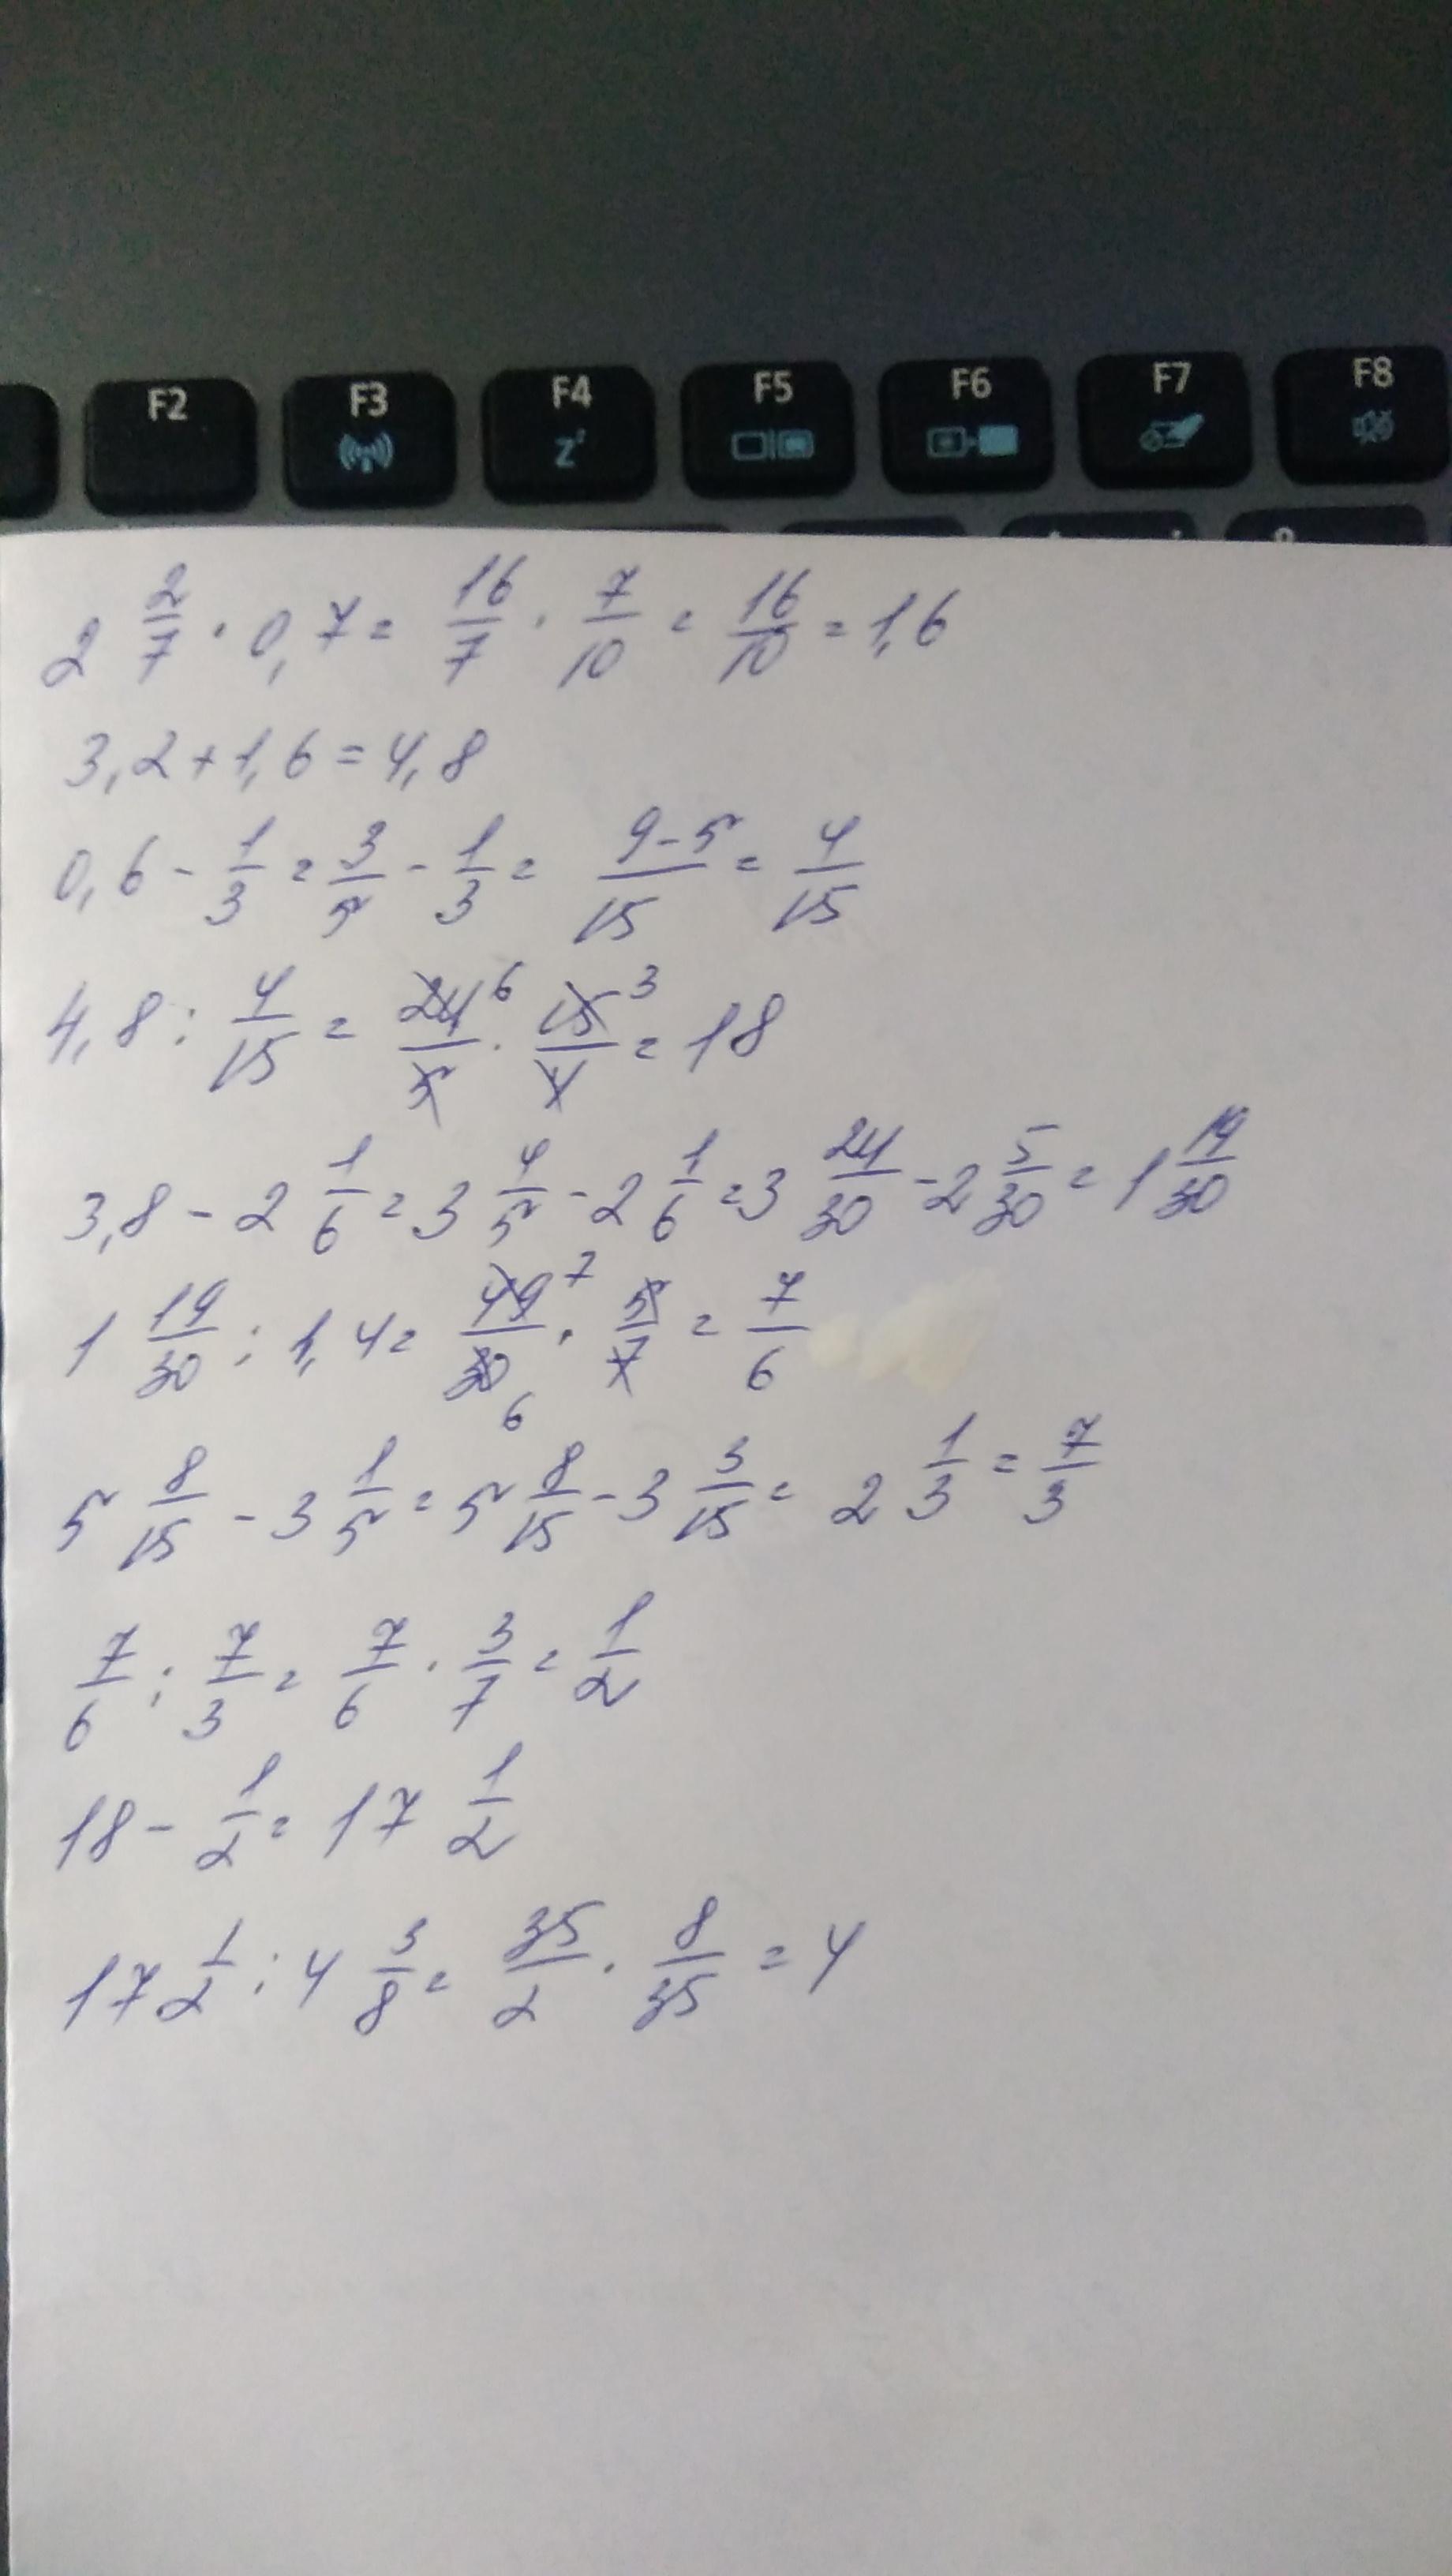 F2 F3 F4 F5 F6 F7 F8
Z
2 2/7 · 0,7 = 16/7 · 7/10 = 16/10 = 1,6
3,2 + 1,6 = 4,8
0,6 - 1/3 = 3/5 - 1/3 = 9-5/15 = 4/15
4,8 : 4/15 = 24 6/5 · 15 3/4 = 18
3,8 - 2 1/6 = 3 4/5 - 2 1/6 = 3 24/30 - 2 5/30 = 1 19/30
1 19/30 : 1,4 = 49 7/30 6 · 5/7 = 7/6
5 8/15 - 3 1/5 = 5 8/15 - 3 3/15 = 2 1/3 = 7/3
7/6 : 7/3 = 7/6 · 3/7 = 1/2
18 - 1/2 = 17 1/2
17 1/2 : 4 3/8 = 35/2 · 8/35 = 4